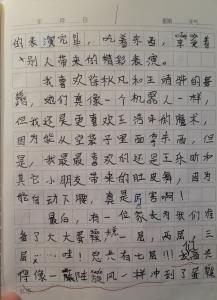 年 月 日 星期 天气
的表演完毕，吃着东西，享受着
别人带来的精彩表演。
我喜欢徐秋凡和王清骅的舞
蹈，她们真像一个机器人一样，
但我还是更喜欢王清华的魔术，
因为能从空袋子里面拿东西，但
是，我最最喜欢的还是王乐昕和
其它小朋友带来的肚皮舞，因为
能自动下腰，真是厉害啊！
最后，有一位家长为我们准
备了大大蛋糕，一层，两层，三
层，哇！总共有七层！！！我
像一阵旋风一样冲到了蛋糕